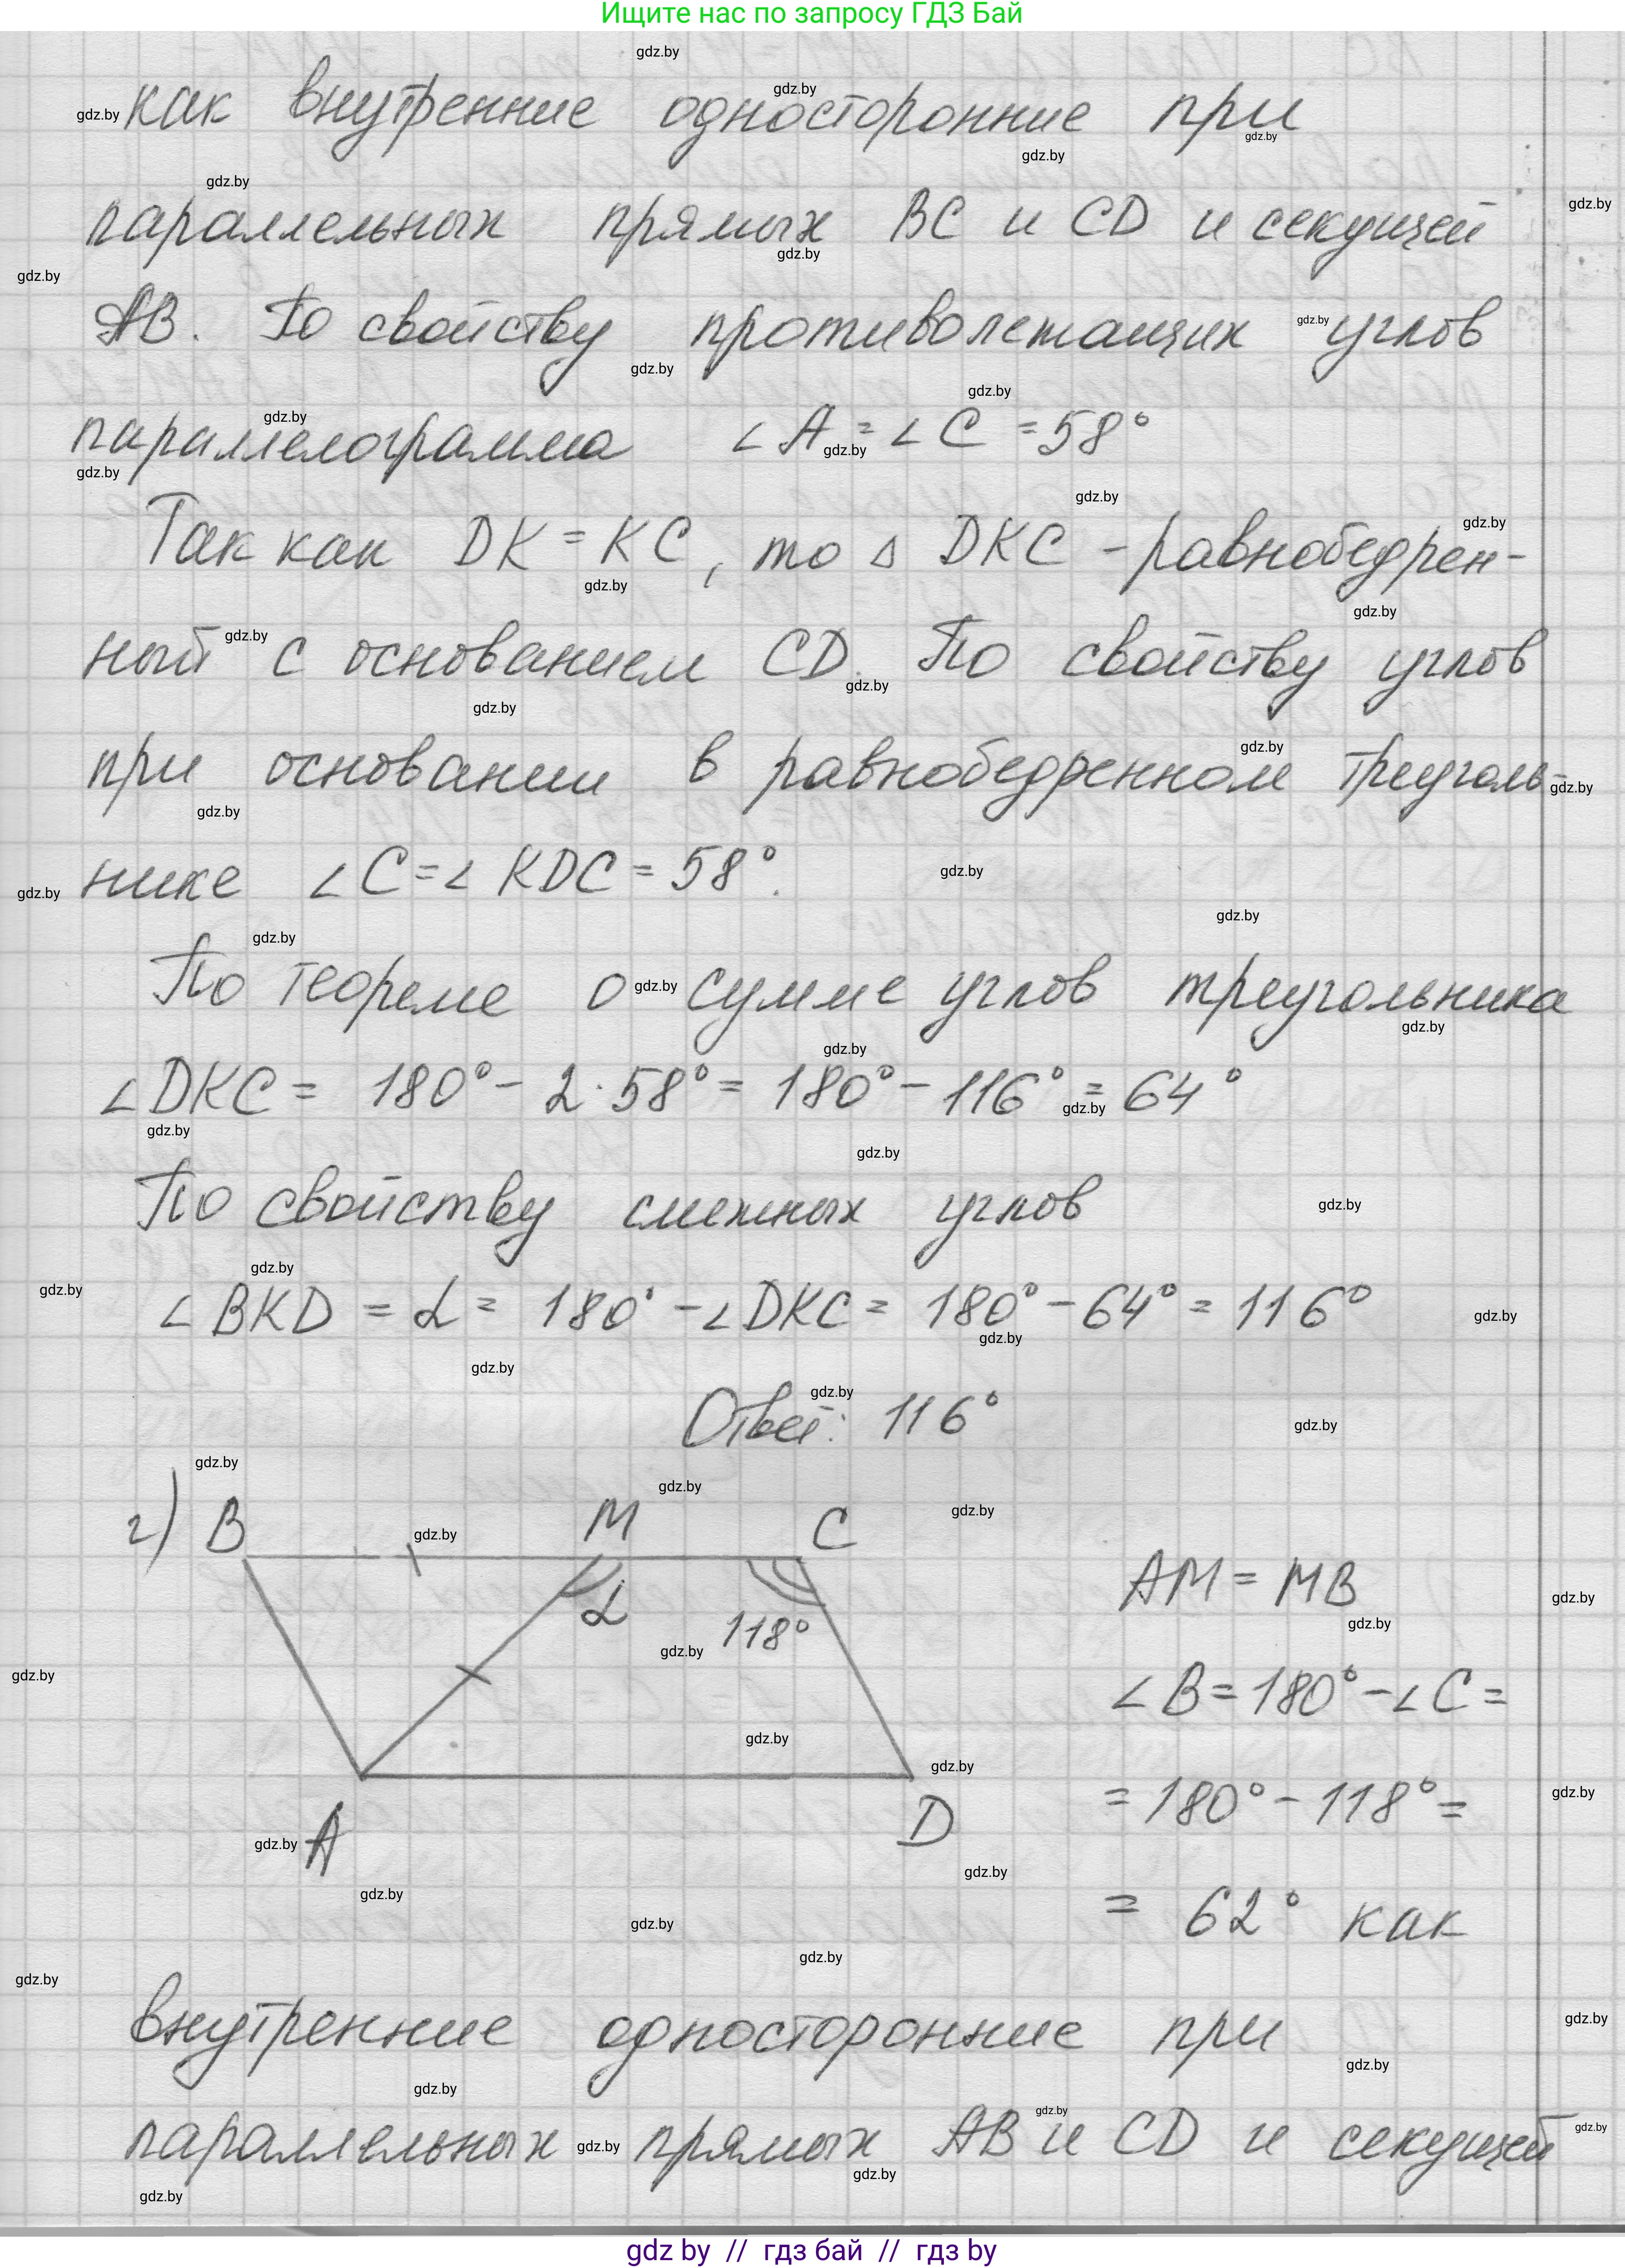 Ищите нас по запросу ГДЗ Бай
как внутренние односторонние при
параллельных прямых BC и CD и секущей
AB. По свойству противолежащих углов
параллелограмма ∠A = ∠C = 58°
Так как DK = KC, то △ DKC - равнобедрен-
ный с основанием CD. По свойству углов
при основании в равнобедренном треуголь-
нике ∠C = ∠KDC = 58°.
По теореме о сумме углов треугольника
∠DKC = 180° - 2·58° = 180° - 116° = 64°
По свойству смежных углов
∠BKD = α = 180° - ∠DKC = 180° - 64° = 116°
Ответ: 116°
г) B M C
α
118°
A D
AM = MB
∠B = 180° - ∠C =
= 180° - 118° =
= 62° как
внутренние односторонние при
параллельных прямых AB и CD и секущей
gdz by // гдз бай // гдз by